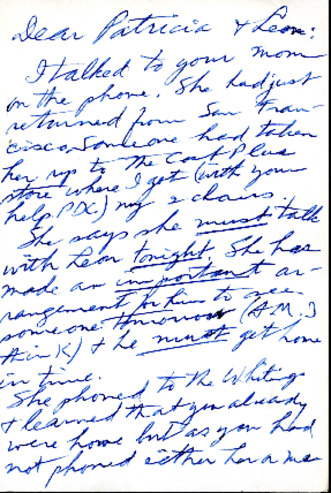 Dear Patricia & Leon:
I talked to your mom
on the phone. She had just
returned from San Fran-
cisco. Someone had taken
her up to the Cost Plus
store where I got (with your
help PDC) my 2 chairs.
She says she must talk
with Leon tonight. She has
made an important ar-
rangement for him to see
someone tomorrow (A.M. I
think) & he must get home
in time.
She phoned to the Whitings
& learned that you already
were home but as you had
not phoned either her or me